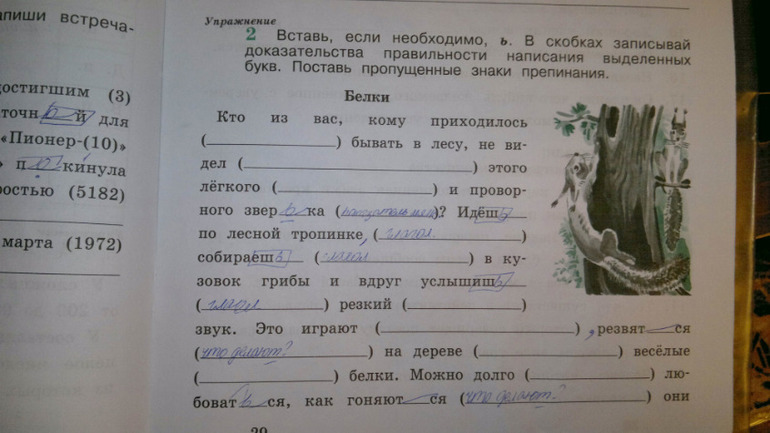 апиши встреча-
достигшим (3)
точн ы й для
«Пионер-(10)»
» п о кинула
ростью (5182)
марта (1972)
Упражнение
2 Вставь, если необходимо, ь. В скобках записывай
доказательства правильности написания выделенных
букв. Поставь пропущенные знаки препинания.
Белки
Кто из вас, кому приходилось
(____) бывать в лесу, не ви-
дел (____) этого
лёгкого (____) и провор-
ного звер ь ка (____)? Идёшь
по лесной тропинке, (глагол)
собираешь (глагол) в ку-
зовок грибы и вдруг услышишь
(глагол) резкий (____)
звук. Это играют (____), резвят__ся
(что делают?) на дереве (____) весёлые
(____) белки. Можно долго (____) лю-
боват ь ся, как гоняют__ся (что делают?) они
29